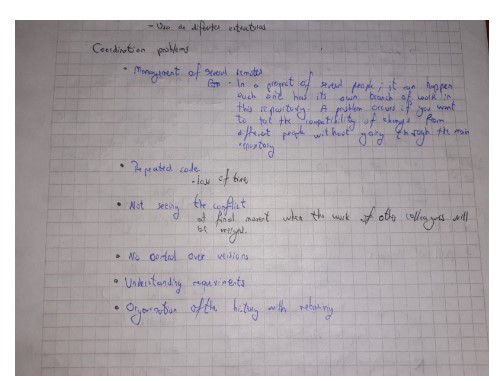 - Use of different structures
Coordination problems
• Management of several remotes
- In a project of several people, it can happen
each one has its own branch of work in
this repository. A problem occurs if you want
to test the compatibility of changes from
different people without going through the main
repository
• Repeated code
- loss of time
• Not seeing the conflict
at final moment when the work of other colleagues will
be merged.
• No control over versions
• Understanding requirements
• Organisation of the history with rebasing